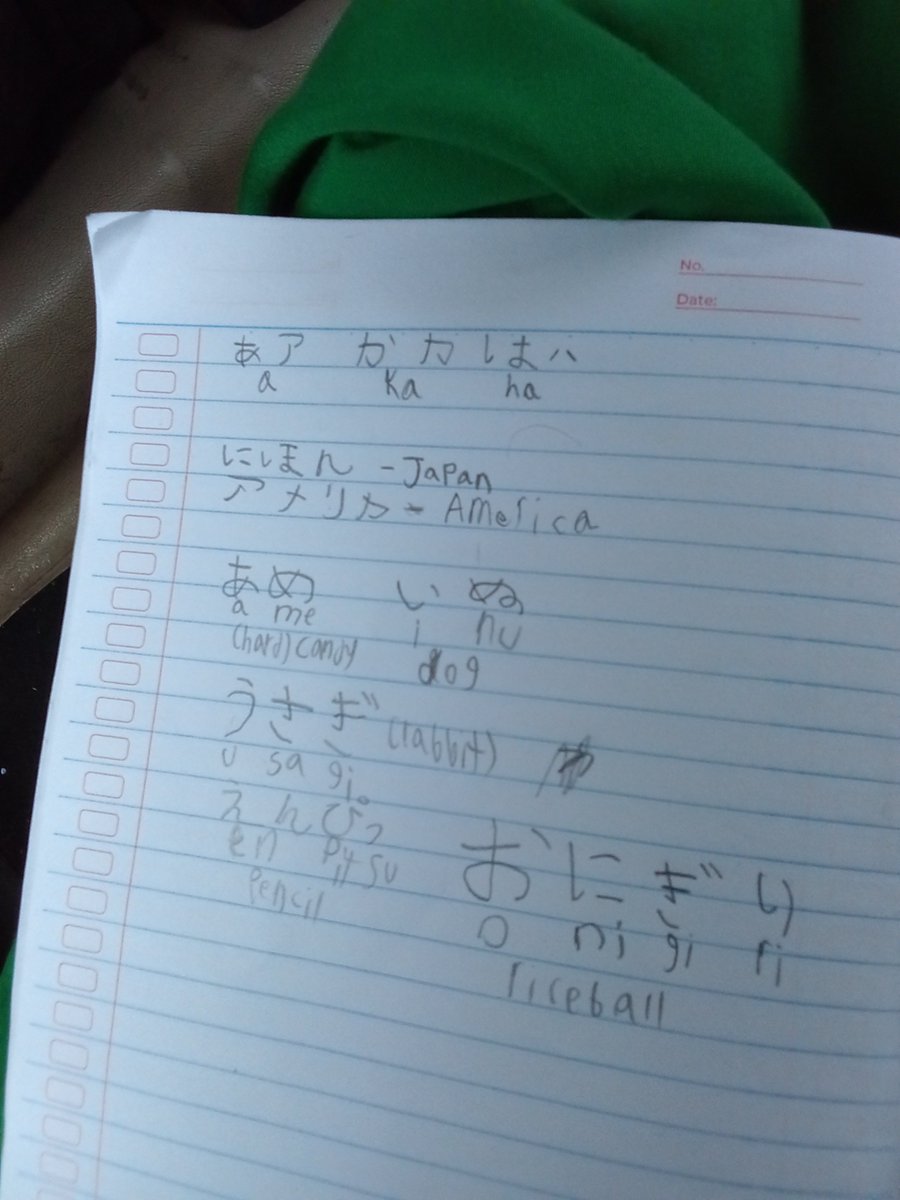 No.
Date:
あア かカ はハ
a ka ha
にほん - Japan
アメリカ - America
あめ いぬ
a me i nu
(hard) candy dog
うさぎ (rabbit)
u sa gi
えんぴつ
en pi tsu
pencil
おにぎり
o ni gi ri
riceball